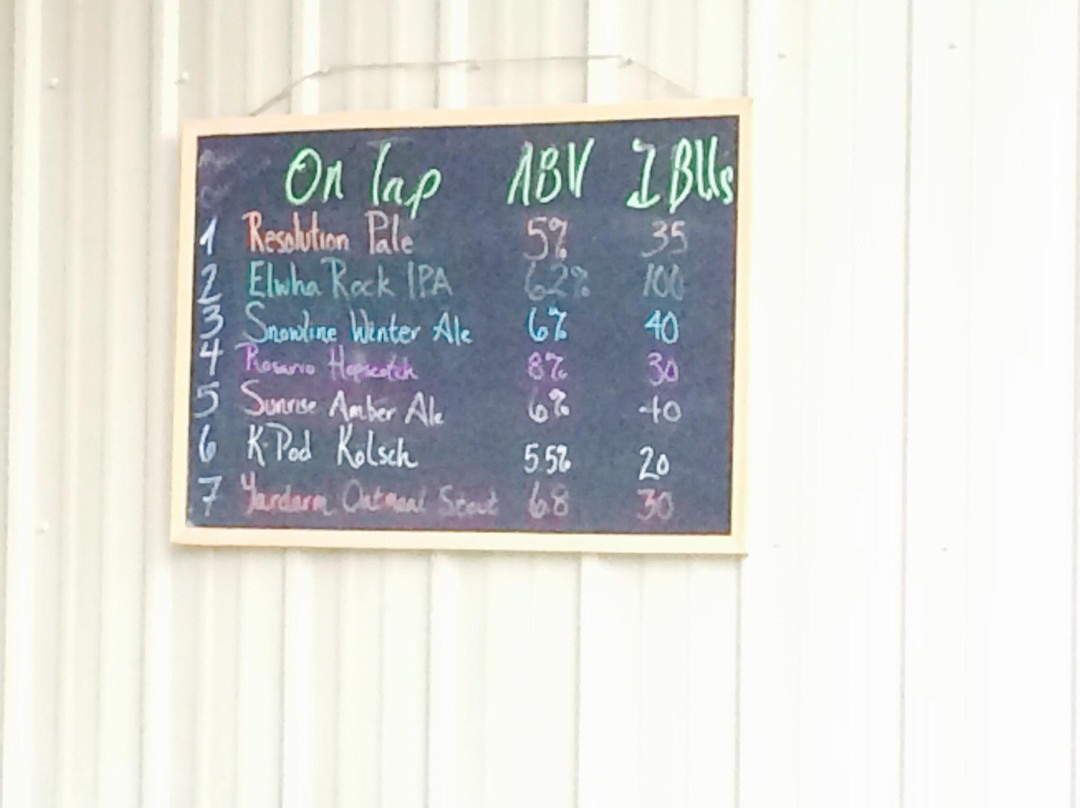 On Tap ABV IBUs
1 Resolution Pale 5% 35
2 Elwha Rock IPA 6.2% 100
3 Snowline Winter Ale 6% 40
4 Rosario Hopscotch 8% 30
5 Sunrise Amber Ale 6% 40
6 K-Pod Kölsch 5.5% 20
7 Yardarm Oatmeal Stout 6.8 30